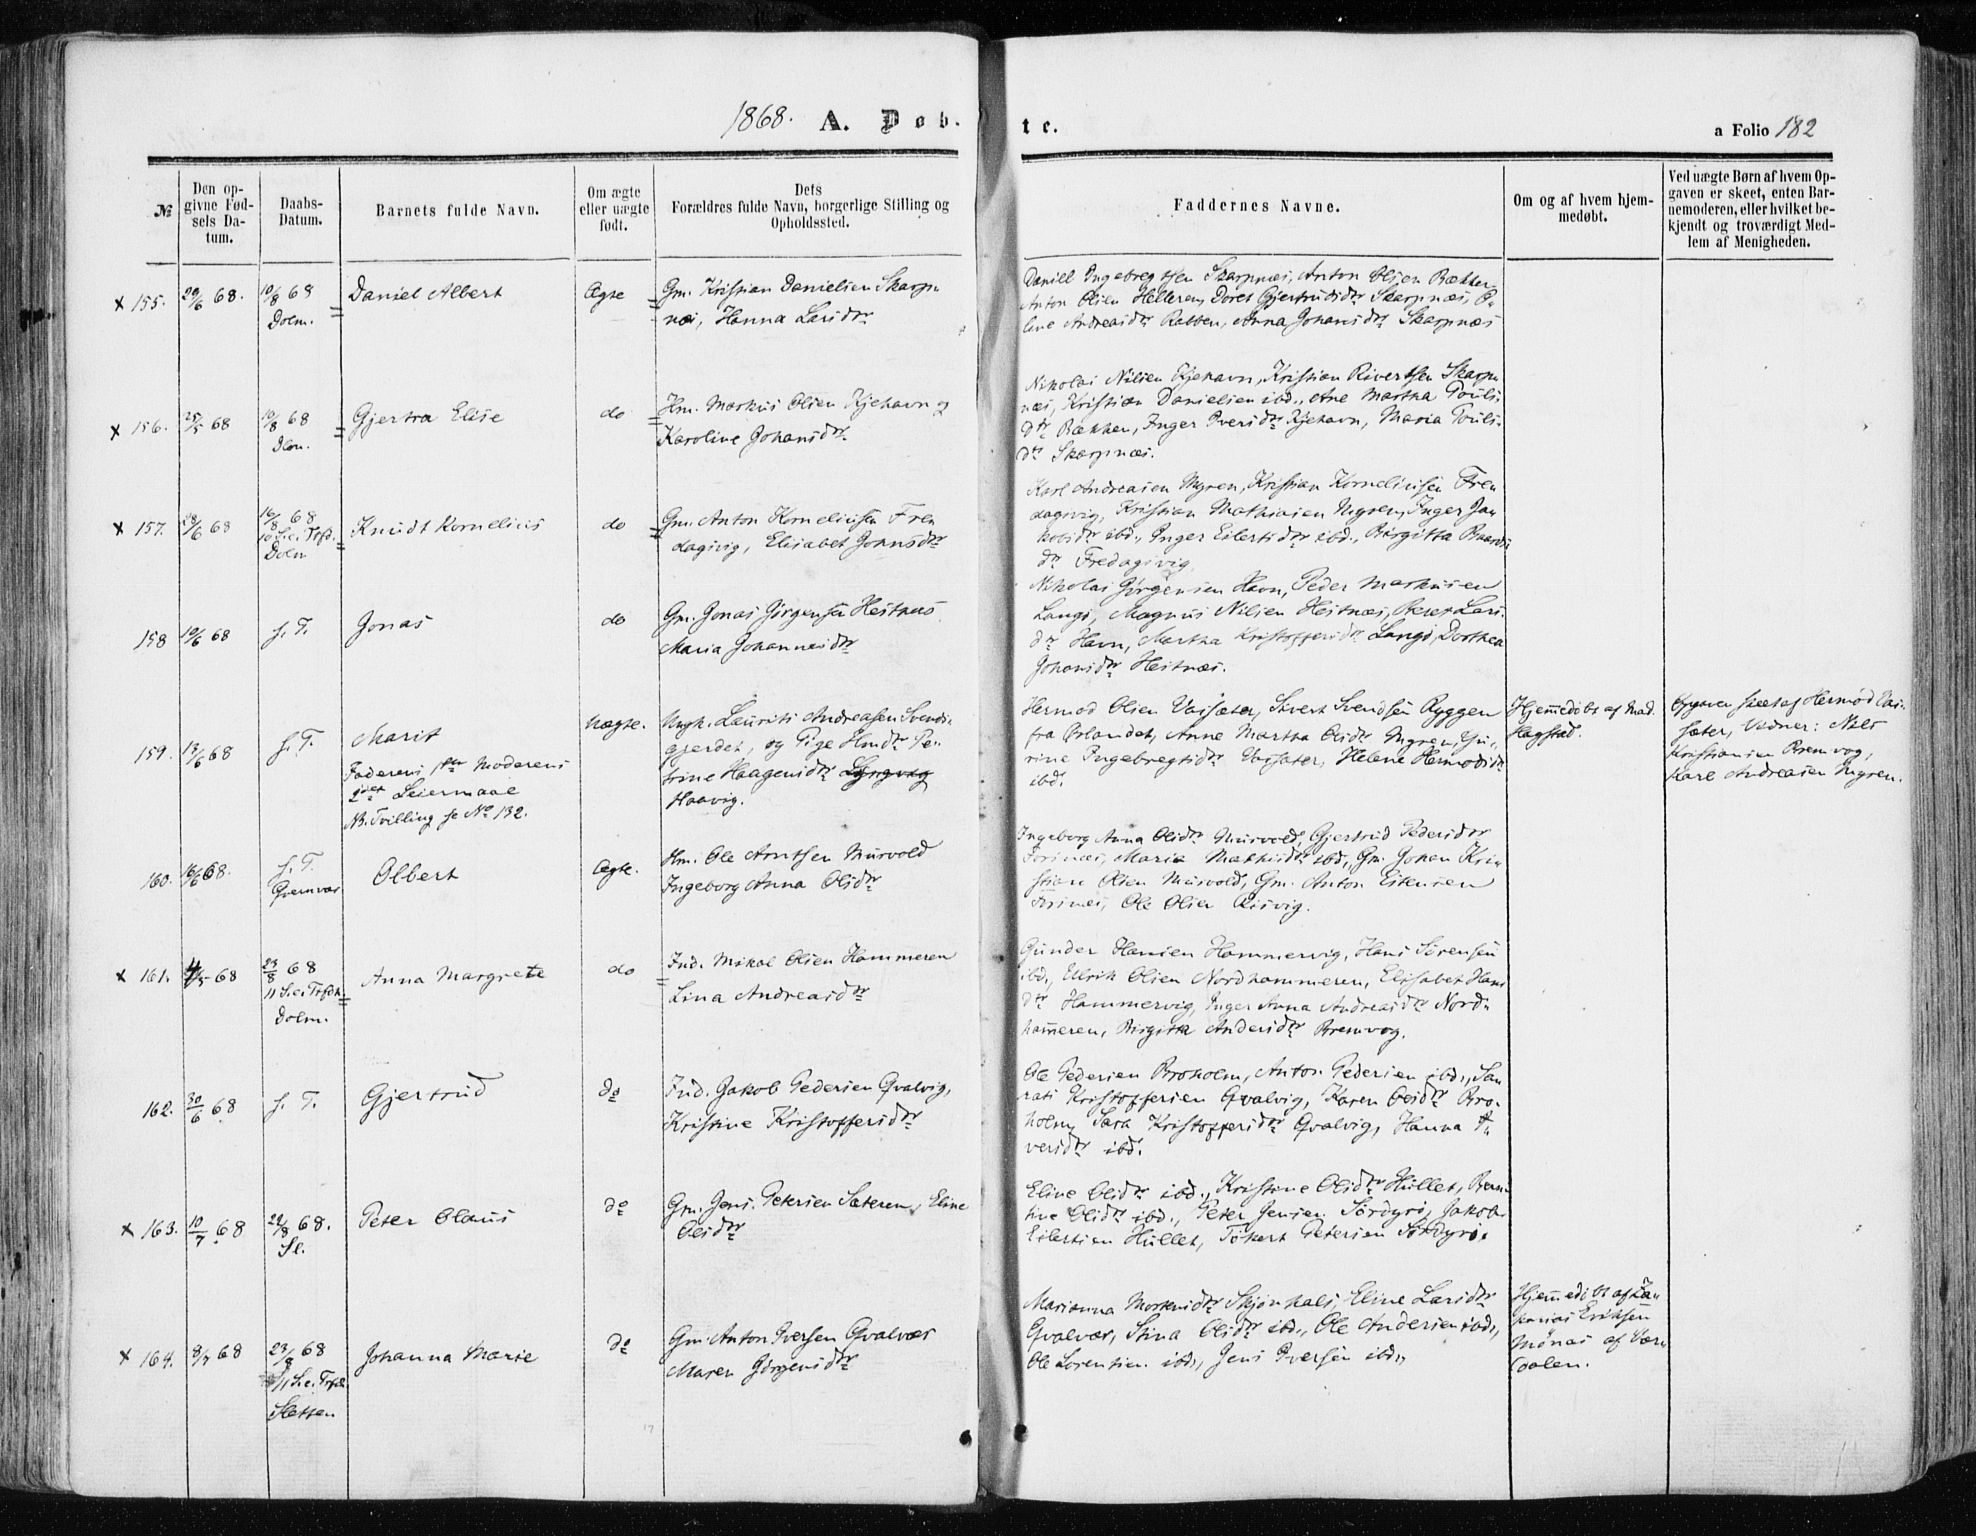 1868. A. Døb.
te.
a Folio 182
№
Den op-
givne Fød-
sels Da-
tum.
Daabs-
Datum.
Barnets fulde Navn.
Om ægte
eller uægte
født.
Dets
Forældres fulde Navn, borgerlige Stilling og
Opholdssted.
Faddernes Navne.
Om og af hvem hjem-
medøbt.
Ved uægte Børn af hvem Op-
gaven er skeet, enten Bar-
nemoderen, eller hvilket be-
kjendt og troværdigt Med-
lem af Menigheden.
x 155. 29/6 68. 10/8 68
Dolm.
Daniel Albert
Ægte
Gm. Kristian Danielsen Skarp-
næs, Hanna Larsdtr
Daniell Ingebregtsen Skarpnæs, Anton Olsen Bækken
Anton Olsen Helleren, Doret Gjertrudsdtr Skarpnæs, O-
line Andreasdtr Rabben, Anna Johansdtr Skarpnæs
x 156. 25/5 68 10/8 68
Dlm.
Gjertra Elise
do
Hm. Markus Olsen Kjehavn og
Karoline Johansdtr
Nikolai Nilsen Kjehavn, Kristian Sivertsen Skarp-
næs, Kristian Danielsen ibd., Ane Martha Pouls-
dtr Bækken, Inger Iversdtr Kjehavn, Maria Pouls-
dtr Skarpnæs.
x 157. 28/6 68 16/8 68
10 S.e. Trfd.
Dolm
Knudt Kornelius
do
Gm. Anton Kornelius­en Fre-
dagsvig, Elisabet Johnsdtr
Karl Andreasen Myren, Kristian Korneliusen Fre-
dagsvig, Kristian Mathiasen Myren, Inger Ja-
kobsdtr ibd., Inger Eilertsdtr ibd., Birgitta Baards-
dtr Fredagsvig
158 10/6 68 s. T.
Jonas
do
Gm. Jonas Jørgensen Hestnes
Maria Johannesdtr
Nikolai Jørgensen Havn, Peder Markusen
Langø, Magnus Nilsen Hestnæs, Beret Lars-
dtr Havn, Martha Kristoffersdtr Langø, Dorthea
Johansdtr Hestnæs.
159. 13/6 68 s. T.
Marit
Faderens 1ste Moderens
2det Leiermaal
NB. Tvilling se No 132.
Uægte.
Ungk. Laurits Andreasen Svends-
gjerdet, og Pige Hmdtr Pe-
trine Haagensdtr
Haavig.
Hermod Olsen Vaisæter, Sivert Svendsen Ryggen
fra Ørlandet, Anne Martha Olsdtr Myren, Gu-
rine Ingebregtsdtr Vaisæter, Helene Hermodsdtr
ibd.
Hjemmedøbt af Mad.
Hagstad.
Opgaven skeet af Hermod Vai-
sæter, Vidner: Nils
Kristiansen Bremvog,
Karl Andreasen Myren.
160. 16/6 68. s. T.
Qvenvær
Olbert
Ægte.
Hm. Ole Arntsen Mursvold
Ingeborg Anna Olsdtr
Ingeborg Anna Olsdtr Mursvold, Gjertrud Pedersdtr
Forsnes, Maria Mathisdtr ibd., Gm. Johan Kri-
stian Olsen Mursvold, Gm. Anton Estensen
Forsnes, Ole Olsen Risvig.
x 161. 4/5 68 23/8 68
11 S.e. Trfdh.
Dolm.
Anna Margrete
do
Ind. Mikal Olsen Hammeren
Lina Andreasdtr
Gunder Hansen Hammervig, Hans Sørensen
ibd., Ulrik Olsen Nordhammeren, Elisabet Hans-
dtr Hammervig, Inger Anna Andreasdtr Nord-
hameren, Birgitta Andersdtr Bremvog.
162. 30/6 68 s. T.
Gjertrud
do
Ind. Jakob Pedersen Qvalvig,
Kristine Kristoffersdtr
Ole Pedersen Broholm, Anton Pedersen ibd.,
Kristoffersen Qvalvig, Karen Olsdtr Bro-
holm, Sara Kristoffersdtr Qvalvig, Hanna I-
versdtr ibd.
x 163. 10/7 68 22/8 68.
Sl.
Peter Olaus
do
Gm. Jens Petersen Sæteren, Eline
Olsdtr
Eline Olsdtr ibd., Kristine Olsdtr Hullet, Bern-
tine Olsdtr ibd., Peter Jensen Sørdyrø, Jakob
Eilertsen Hullet, Tøkert Petersen Sørdyrø.
x 164. 8/7 68 23/8 68
11 S.e. Trfdh.
Sletten
Johanna Marie
do
Gm. Anton Iversen Qvalvær
Maren Jørgensdtr
Marianna Mortensdtr Skjønhals, Eline Larsdtr
Qvalvær, Stina Olsdtr ibd., Ole Andersen ibd.,
Ole Lorentsen ibd., Jens Iversen ibd.,
Hjemmedøbt af Za-
karias Eriksen
Mønas af Vær-
dalen.